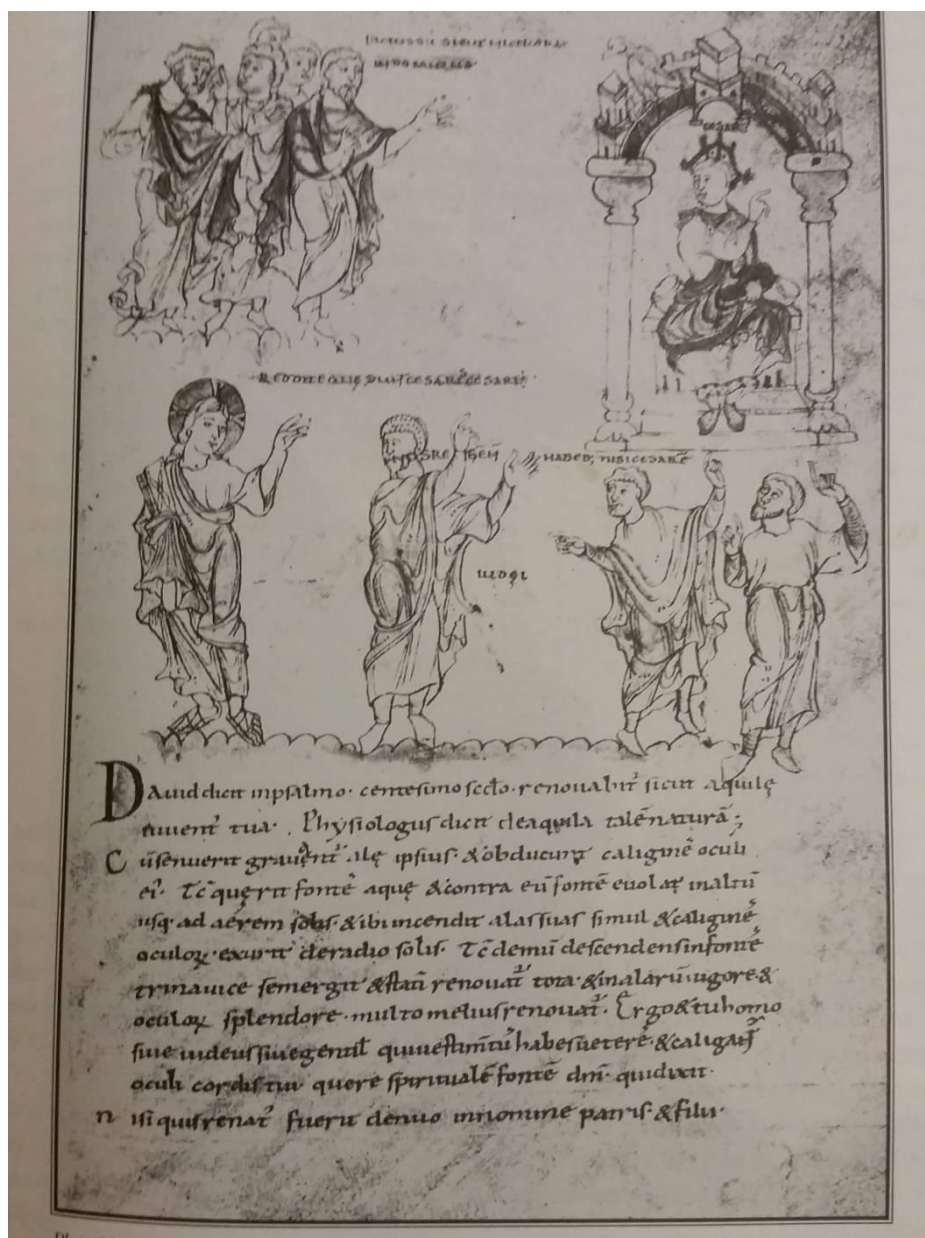 CESAR
REDDITE QUĘ SUNT CESARIS CESARI
NOS REGEM HABEM; NISI CESARĒ
IUDĘI
DAuid dicit inpsalmo· centesimo scd̄o· renouabit᷑ sicut aquilę
iuuent᷑ tua· Physiologus dicit deaquila talē naturā;
Cū senuerit grauant᷑ alę ipsius· & obducunt᷑ caliginē oculi
ei᷑· Tc̄ quęrit fontē aquę &contra eū fontē euolat inaltū
usq· ad aerem solis· & ibi incendit alas suas simul &caliginē
oculoꝝ· exurit deradio solis· Tc̄ demū descendens infontē
trinauice semergit &statī renouat᷑ tota· &inalarū uigore &
oculoꝝ splendore· multo melius renouat᷑· Ergo &tu homo
siue iudeus siue gentil qui uestimtū habes ueterē· &caligant᷑
oculi cordis tui· quere spiritualē fontē dn̄i· qui dixit·
nisi quis renat᷑ fuerit denuo innomine patris· &filii·